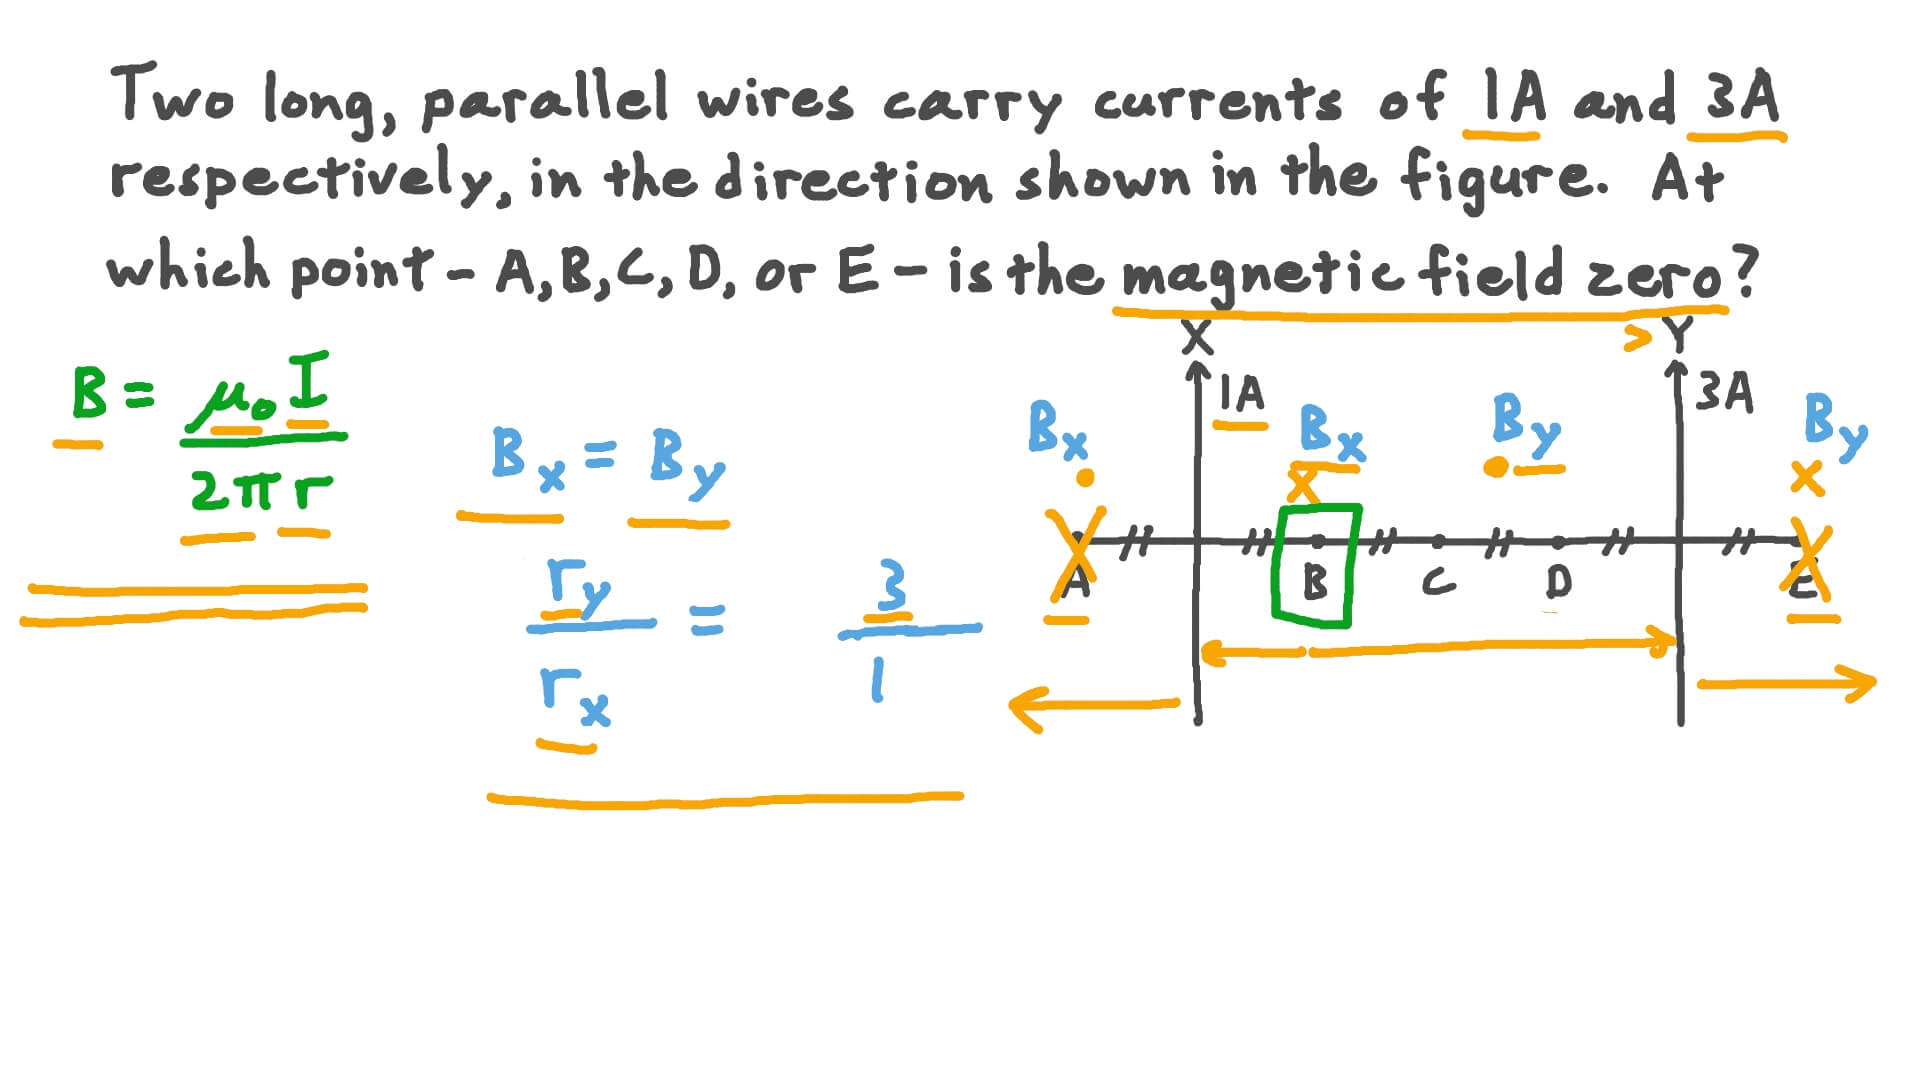 Two long, parallel wires carry currents of 1A and 3A
respectively, in the direction shown in the figure. At
which point - A, B, C, D, or E - is the magnetic field zero?
B = μ₀I / 2πr
Bx = By
ry / rx = 3 / 1
X Y
1A 3A
Bx Bx By By
x x
A B C D E